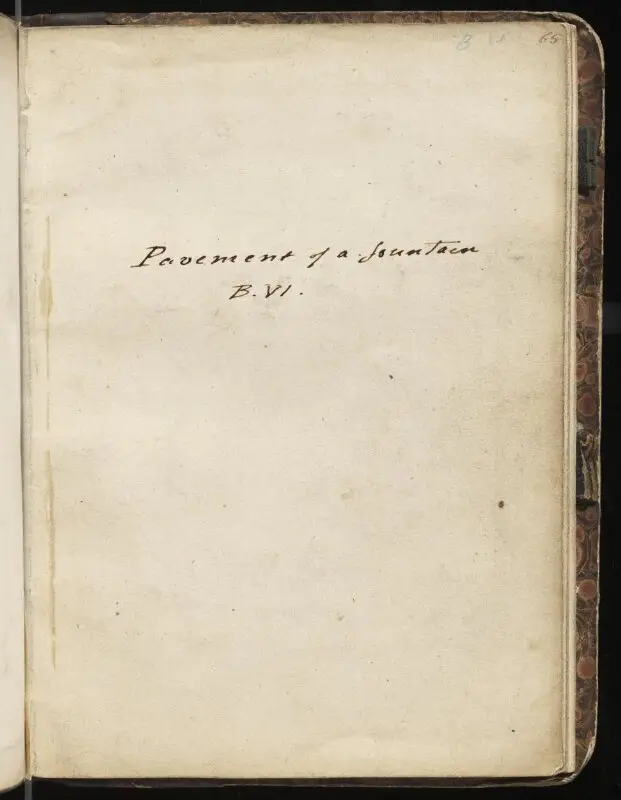 65
Pavement of a fountain
B.VI.